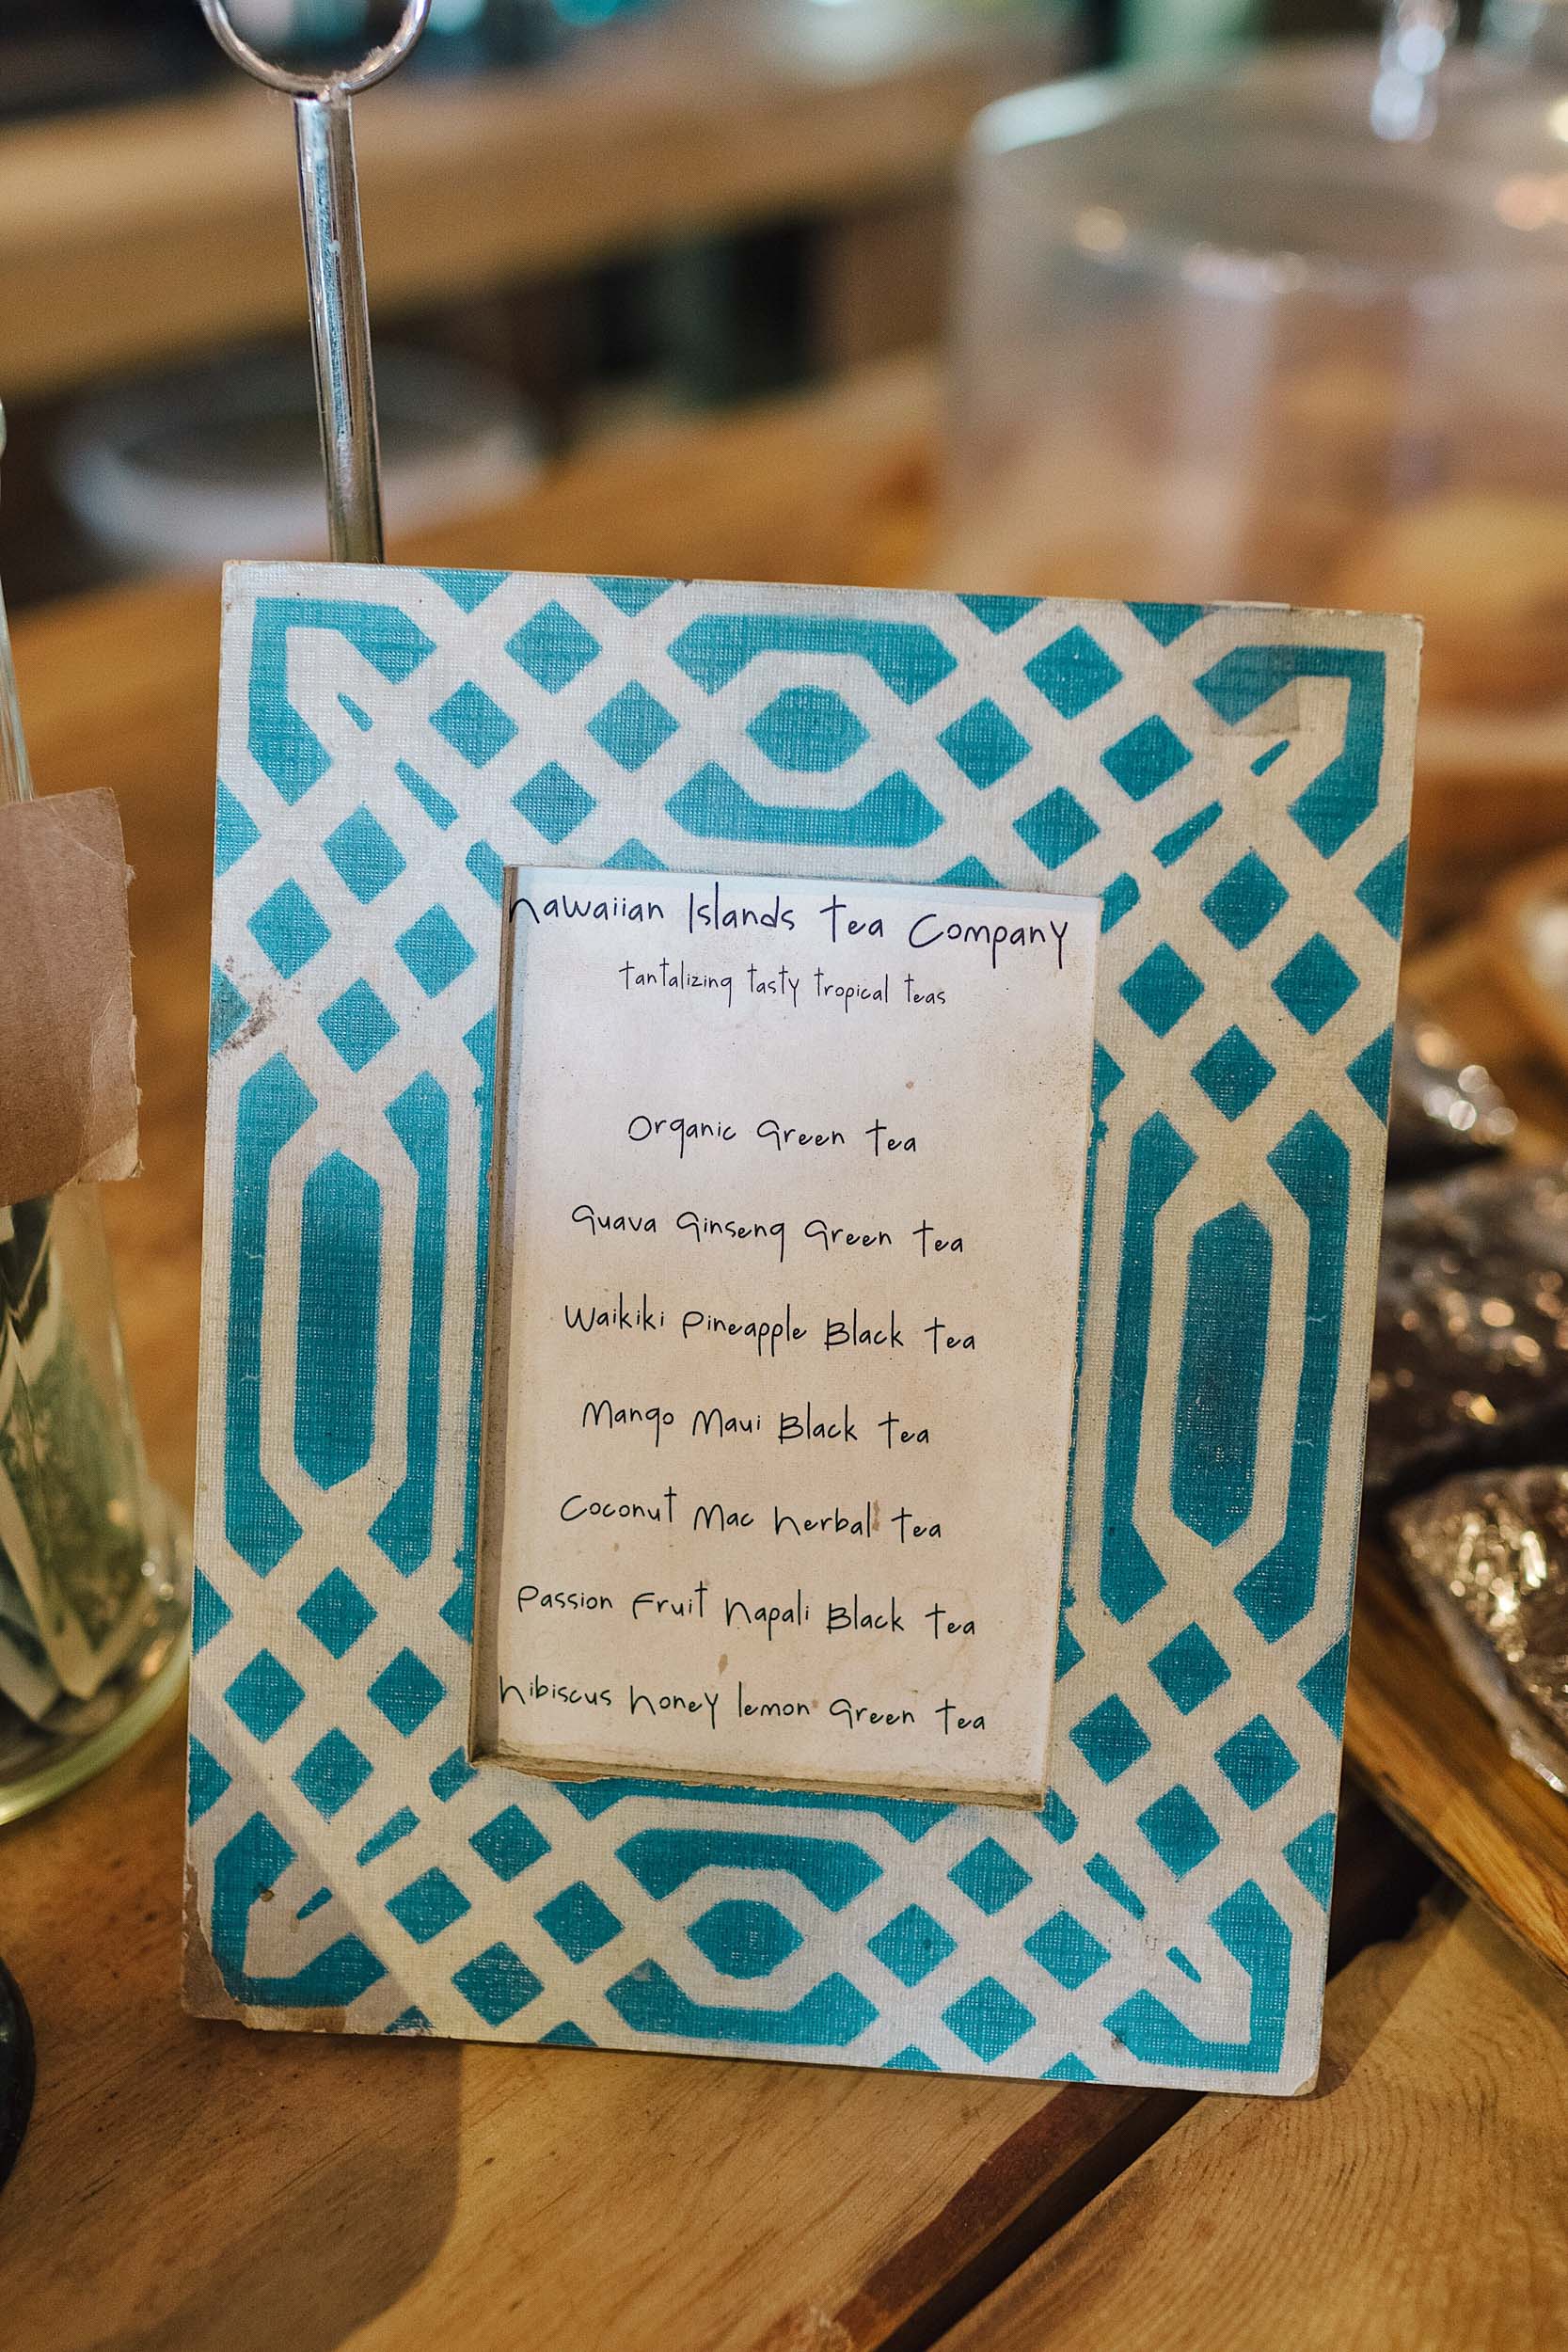 Hawaiian Islands Tea Company
tantalizing tasty tropical teas
Organic Green Tea
Guava Ginseng Green Tea
Waikiki Pineapple Black Tea
Mango Maui Black Tea
Coconut Mac Herbal Tea
Passion Fruit Napali Black Tea
Hibiscus Honey lemon Green Tea